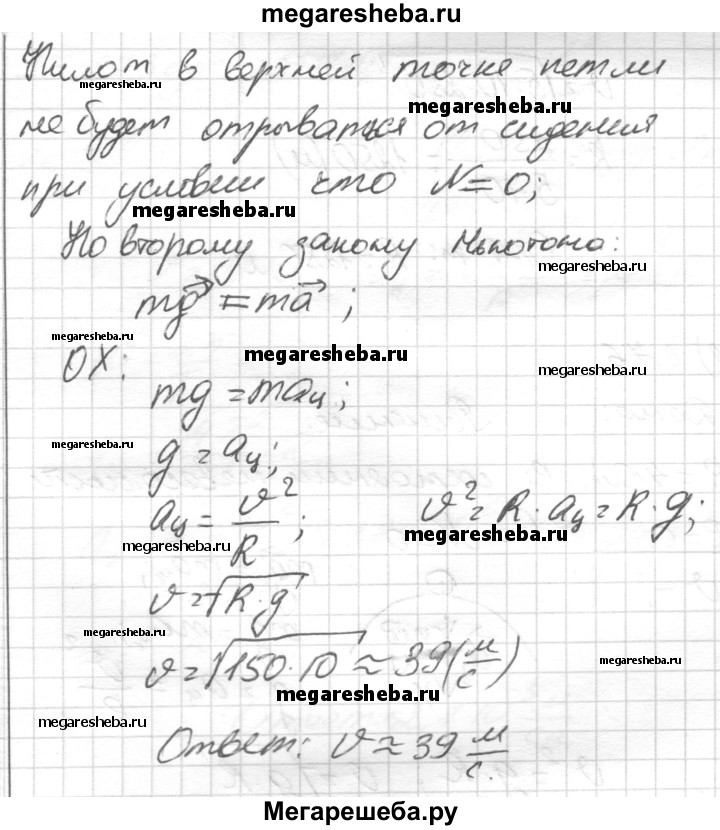 megaresheba.ru
Пилот в верхней точке петли
megaresheba.ru
megaresheba.ru
не будет отрываться от сидения
при условии что N=0;
megaresheba.ru
По второму закону Ньютона:
megaresheba.ru
mg⃗ = ma⃗ ;
megaresheba.ru
megaresheba.ru
OX:
megaresheba.ru
mg = maц;
megaresheba.ru
g = aц;
aц = υ²/R ; υ² = R · aц = R · g;
megaresheba.ru
megaresheba.ru
υ = √R·g
megaresheba.ru
υ = √150·10 ≈ 39 (м/с)
megaresheba.ru
megaresheba.ru
megaresheba.ru
Ответ: υ ≈ 39 м/с.
Мегарешеба.ру